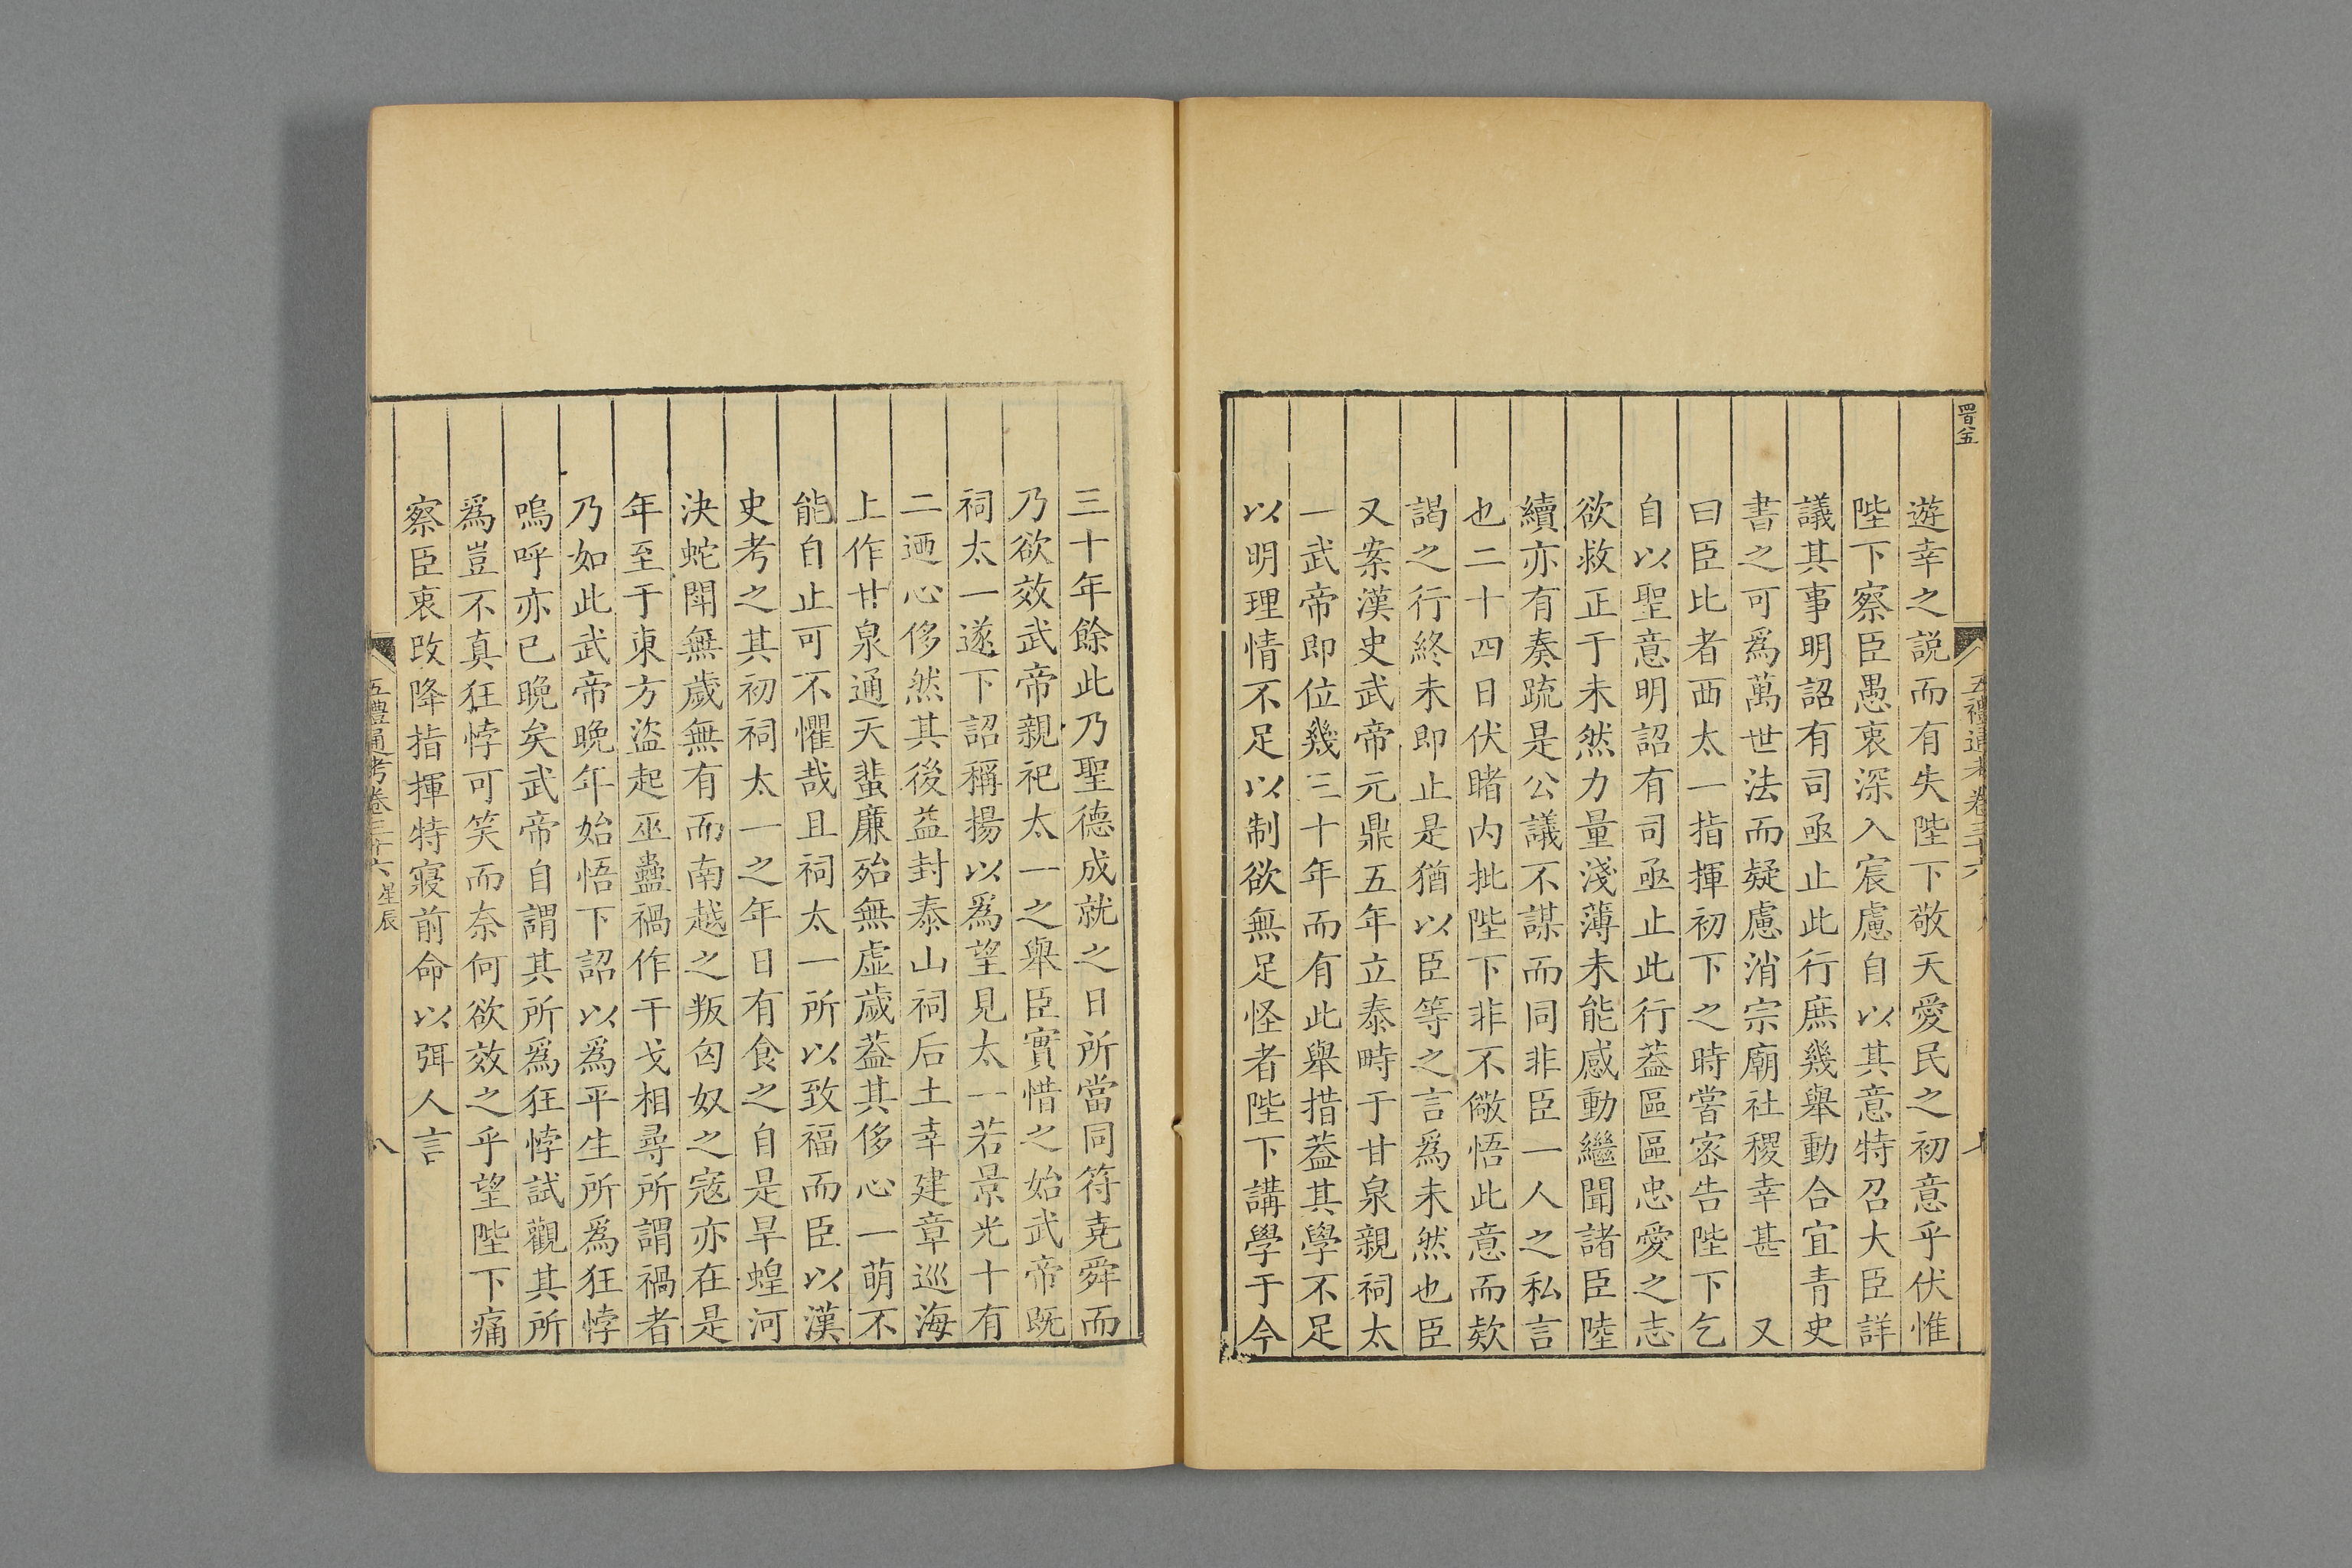 四百八五
五禮通考卷三十六
遊幸之説而有失陛下敬天愛民之初意乎伏惟
陛下察臣愚衷深入宸慮自以其意特召大臣詳
議其事明詔有司亟止此行庶幾舉動合宜青史
書之可爲萬世法而疑慮消宗廟社稷幸甚　又
曰臣比者西太一指揮初下之時嘗密告陛下乞
自以聖意明詔有司亟止此行葢區區忠愛之志
欲救正于未然力量淺薄未能感動繼聞諸臣陸
續亦有奏疏是公議不謀而同非臣一人之私言
也二十四日伏睹内批陛下非不儆悟此意而欵
謁之行終未即止是猶以臣等之言爲未然也臣
又案漢史武帝元鼎五年立泰畤于甘泉親祠太
一武帝即位幾三十年而有此舉措葢其學不足
以明理情不足以制欲無足怪者陛下講學于今
三十年餘此乃聖德成就之日所當同符堯舜而
乃欲效武帝親祀太一之舉臣實惜之始武帝既
祠太一遂下詔稱揚以爲望見太一若景光十有
二迺心侈然其後益封泰山祠后土幸建章巡海
上作甘泉通天蜚廉殆無虛歲葢其侈心一萌不
能自止可不懼哉且祠太一所以致福而臣以漢
史考之其初祠太一之年日有食之自是旱蝗河
決蛇鬭無歲無有而南越之叛匈奴之寇亦在是
年至于東方盜起巫蠱禍作干戈相尋所謂禍者
乃如此武帝晚年始悟下詔以爲平生所爲狂悖
嗚呼亦已晚矣武帝自謂其所爲狂悖試觀其所
爲豈不真狂悖可笑而奈何欲效之乎望陛下痛
察臣衷改降指揮特寢前命以弭人言
五禮通考卷三十六 星辰
八